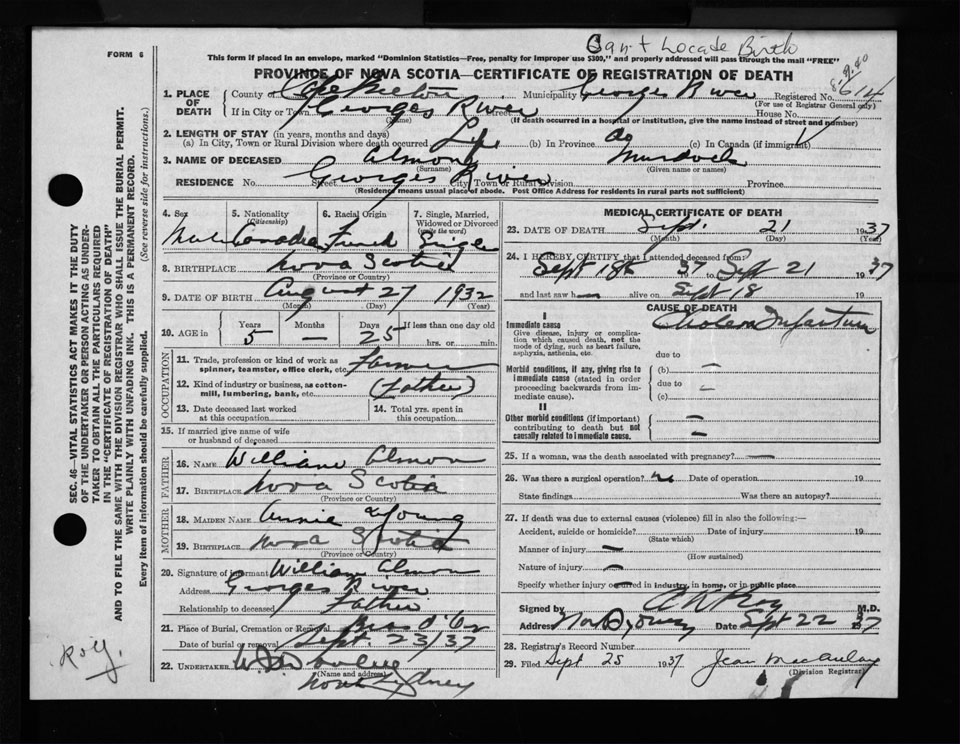 Can't Locate Birth
FORM 6
This form if placed in an envelope, marked "Dominion Statistics—Free, penalty for improper use $300," and properly addressed will pass through the mail "FREE"
PROVINCE OF NOVA SCOTIA—CERTIFICATE OF REGISTRATION OF DEATH
1. PLACE OF DEATH County of Cape Breton Municipality Georges River Registered No. 614
(For use of Registrar General only)
If in City or Town Georges River Street House No.
(Name) (If death occurred in a hospital or institution, give the name instead of street and number)
2. LENGTH OF STAY (in years, months and days)
(a) In City, Town or Rural Division where death occurred Life (b) In Province do (c) In Canada (if immigrant)
3. NAME OF DECEASED Almon Murdock
(Surname) (Given name or names)
RESIDENCE No. Street Georges River City, Town or Rural Division Province
(Residence means usual place of abode. Post Office Address for residents in rural parts not sufficient)
4. Sex 5. Nationality (Citizenship) 6. Racial Origin 7. Single, Married, Widowed or Divorced (write the word)
Male Canadian French Single
8. BIRTHPLACE Nova Scotia
(Province or Country)
9. DATE OF BIRTH August 27 1932
(Month) (Day) (Year)
10. AGE in Years Months Days If less than one day old
5 — 25 hrs. or min.
OCCUPATION
11. Trade, profession or kind of work as spinner, teamster, office clerk, etc. Farmer
12. Kind of industry or business, as cotton-mill, lumbering, bank, etc. (Father)
13. Date deceased last worked at this occupation
14. Total yrs. spent in this occupation
15. If married give name of wife or husband of deceased
FATHER
16. NAME William Almon
17. BIRTHPLACE Nova Scotia
(Province or Country)
MOTHER
18. MAIDEN NAME Annie Young
19. BIRTHPLACE Nova Scotia
(Province or Country)
20. Signature of informant William Almon
Address Georges River
Relationship to deceased Father
21. Place of Burial, Cremation or Removal Bras d'Or
Date of burial or removal Sept. 23/37
22. UNDERTAKER
(Name and address)
North Sydney
MEDICAL CERTIFICATE OF DEATH
23. DATE OF DEATH Sept. 21 1937
(Month) (Day) (Year)
24. I HEREBY CERTIFY that I attended deceased from:
Sept 18th 37 to Sept 21 1937
and last saw h alive on Sept 18 19
CAUSE OF DEATH
I
Immediate cause Cholera Infantum
Give disease, injury or complication which caused death, not the mode of dying, such as heart failure, asphyxia, asthenia, etc.
due to
Morbid conditions, if any, giving rise to immediate cause (stated in order proceeding backwards from immediate cause).
(b) —
due to —
(c)
II
Other morbid conditions (if important) contributing to death but not causally related to immediate cause.
25. If a woman, was the death associated with pregnancy? —
26. Was there a surgical operation? no Date of operation 19
State findings Was there an autopsy?
27. If death was due to external causes (violence) fill in also the following:—
Accident, suicide or homicide? Date of injury 19
(State which)
Manner of injury —
(How sustained)
Nature of injury —
Specify whether injury occurred in industry, in home, or in public place
Signed by M.D.
Address Date Sept 22 1937
28. Registrar's Record Number
29. Filed Sept 25 1937 Jean MacAulay
(Division Registrar)
SEC. 46—VITAL STATISTICS ACT MAKES IT THE DUTY
OF THE UNDERTAKER OR PERSON ACTING AS UNDER-
TAKER TO OBTAIN ALL THE PARTICULARS REQUIRED
IN THE "CERTIFICATE OF REGISTRATION OF DEATH"
AND TO FILE THE SAME WITH THE DIVISION REGISTRAR WHO SHALL ISSUE THE BURIAL PERMIT.
WRITE PLAINLY WITH UNFADING INK. THIS IS A PERMANENT RECORD.
Every item of information should be carefully supplied. (See reverse side for instructions.)